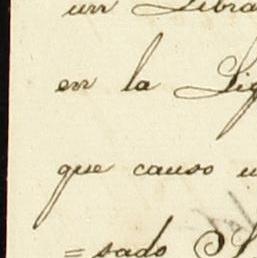 un Libra
en la Lig
que causo u
= sado